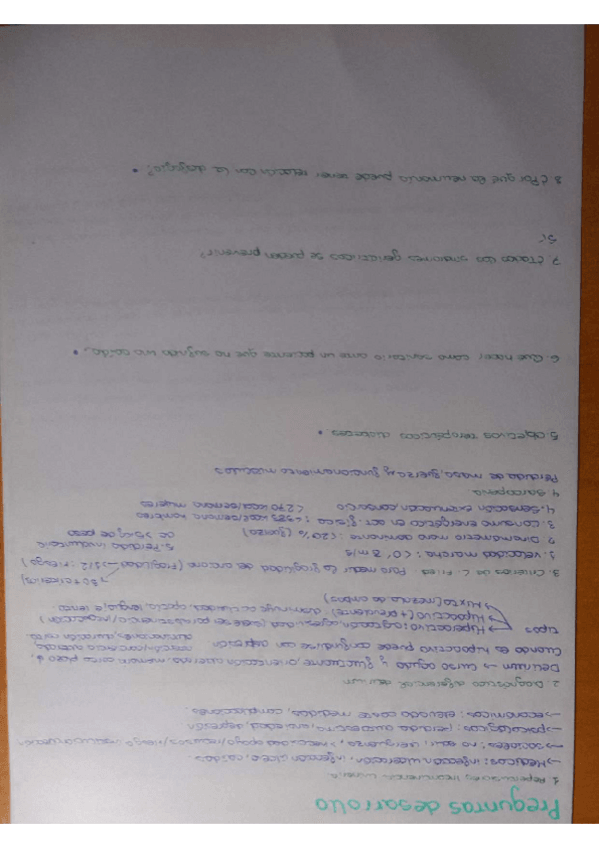 Preguntas desarrollo
1. Repercusiones Incontinencia urinaria
→ Médicos: infección, ulceración, infección, caídas
→ sociales: no salir, vergüenza, > necesidad apoyo/recursos/riesgo
→ psicológicos: pérdida autoestima, ansiedad, depresión
→ económicos: elevado coste medidas, complicaciones
2. Diagnóstico diferencial delirium
Delirium → curso agudo y fluctuante, orientación alterada, memoria corto plazo ↓,
Cuando es hipoactivo puede confundirse con depresión
tipos
→ Hiperactivo: agitación, agresividad
→ Hipoactivo (+ prevalente): disminuye actividad, apatía, lenguaje lento
→ Mixto (mezcla de ambos)
3. Criterios de L. Fried. Para medir la fragilidad de anciano (Fragilidad → 3/5
1. velocidad marcha: < 0'8 m/s
2. Dinamómetro mano dominante: < 20% (fuerza)
3. Consumo energético en act. física: < 383 kcal/semana hombres
< 270 kcal/semana mujeres
4. Sensación extenuación, cansancio
5. Pérdida involuntaria
de > 5 kg de peso
4. Sarcopenia
Pérdida de masa, fuerza y funcionamiento músculos
5. Objetivos terapéuticos
6. Que hacer como sanitario ante un paciente que ha sufrido una caída.
7. ¿Todos los síndromes geriátricos se pueden prevenir?
Sí
8. ¿Por qué la neumonía puede tener relación con la disfagia?